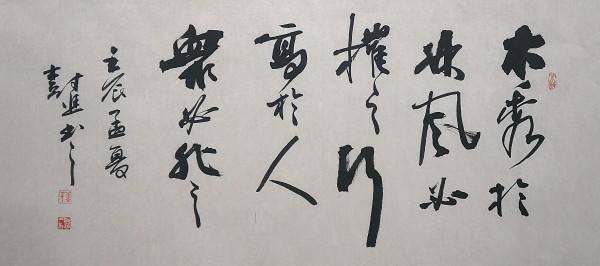 木秀於
林風必
摧之行
高於人
衆必非之
壬辰孟夏
書之